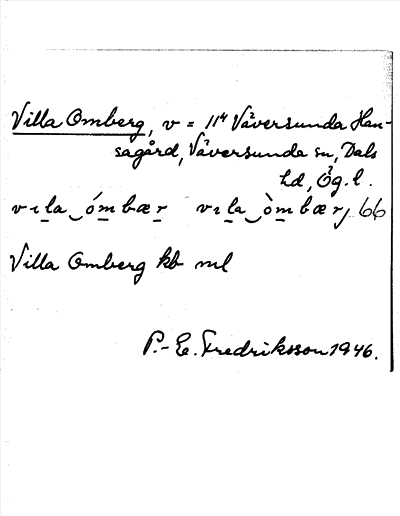 Villa Omberg, v = 11⁴ Väversunda Han-
sagård, Väversunda sn, Dals
hd, Ög. l.
vıla‿ómbær vıla‿òmbær, 66
Villa Omberg kb ml
P.-E. Fredriksson 1946.